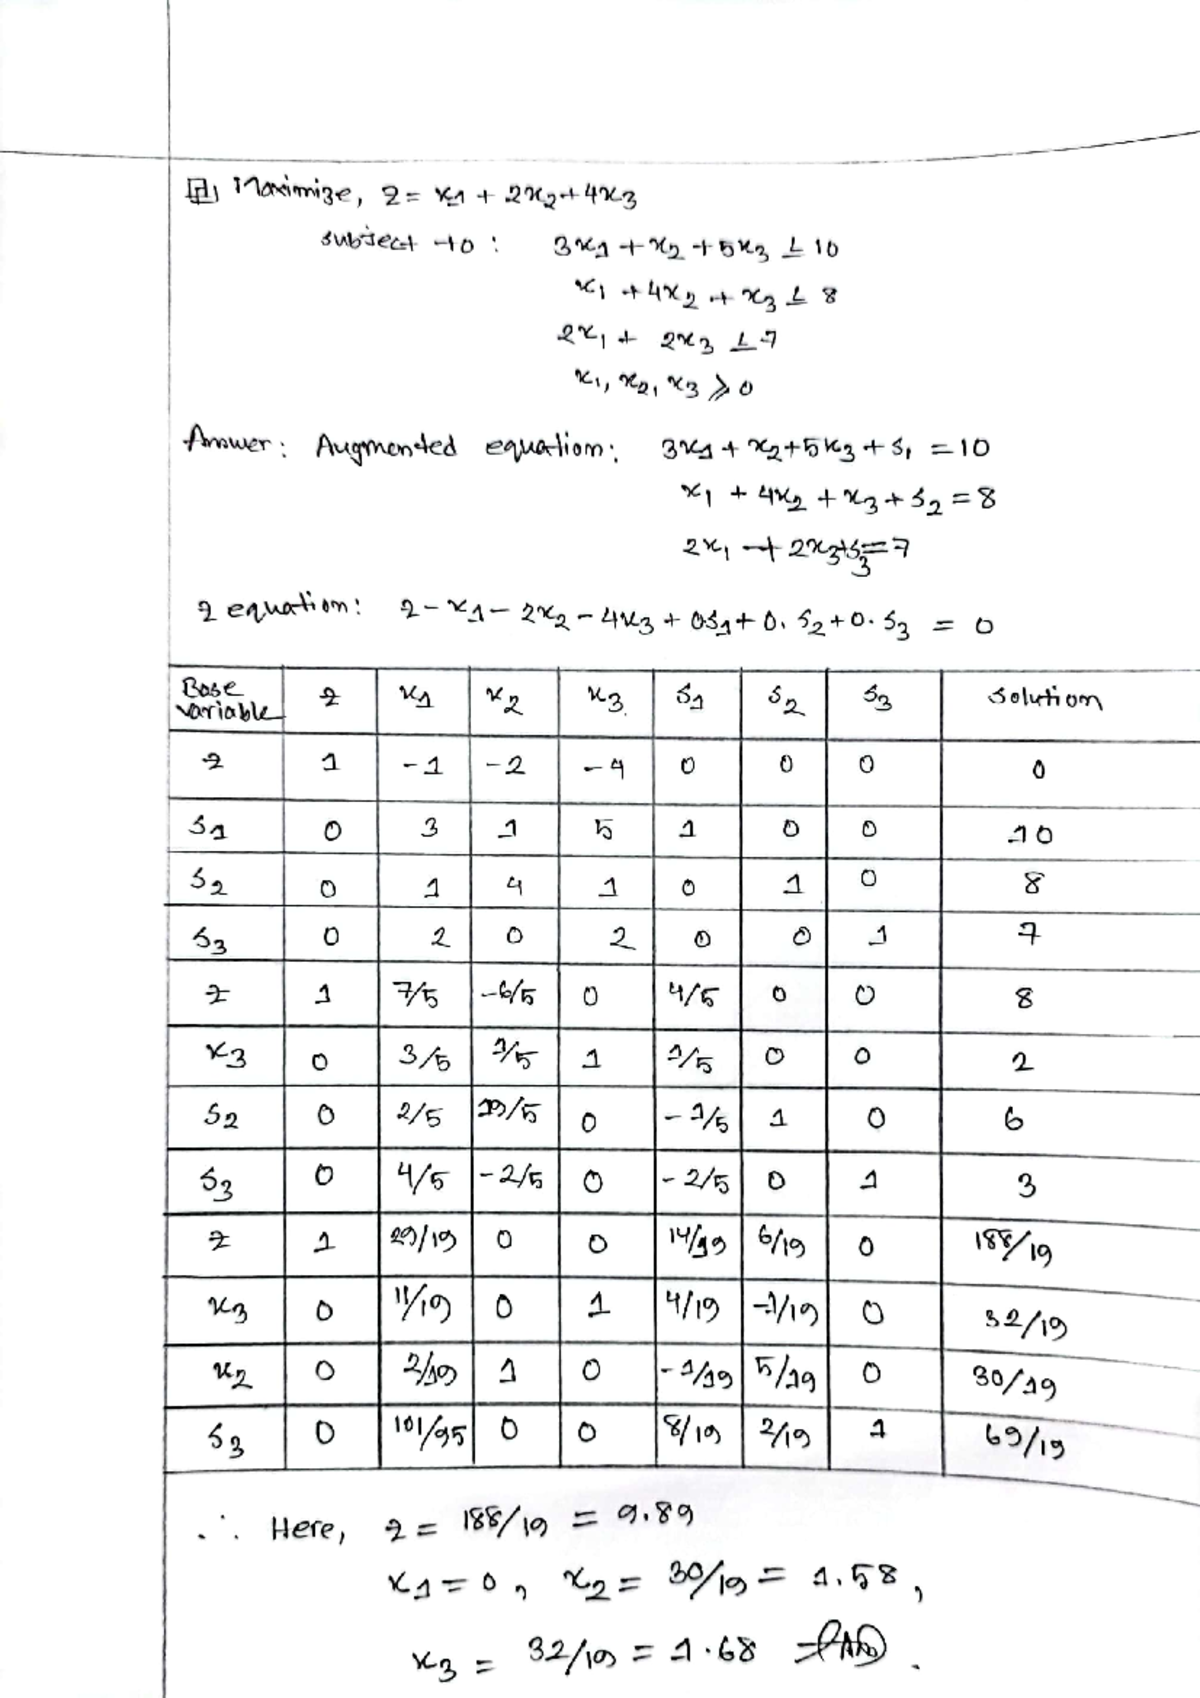 Maximize, z = x1 + 2x2 + 4x3
subject to : 3x1 + x2 + 5x3 ≤ 10
x1 + 4x2 + x3 ≤ 8
2x1 + 2x3 ≤ 7
x1, x2, x3 ≥ 0
Answer: Augmented equation: 3x1 + x2 + 5x3 + s1 = 10
x1 + 4x2 + x3 + s2 = 8
2x1 + 2x3 + s3 = 7
z equation: z - x1 - 2x2 - 4x3 + 0s1 + 0. s2 + 0. s3 = 0
Base variable z x1 x2 x3. s1 s2 s3 solution
z 1 -1 -2 -4 0 0 0 0
s1 0 3 1 5 1 0 0 10
s2 0 1 4 1 0 1 0 8
s3 0 2 0 2 0 0 1 7
z 1 7/5 -6/5 0 4/5 0 0 8
x3 0 3/5 1/5 1 1/5 0 0 2
s2 0 2/5 19/5 0 -1/5 1 0 6
s3 0 4/5 -2/5 0 -2/5 0 1 3
z 1 29/19 0 0 14/19 6/19 0 188/19
x3 0 11/19 0 1 4/19 -1/19 0 32/19
x2 0 2/19 1 0 -1/19 5/19 0 30/19
s3 0 101/95 0 0 8/19 2/19 1 69/19
∴ Here, z = 188/19 = 9.89
x1 = 0, x2 = 30/19 = 1.58,
x3 = 32/19 = 1.68